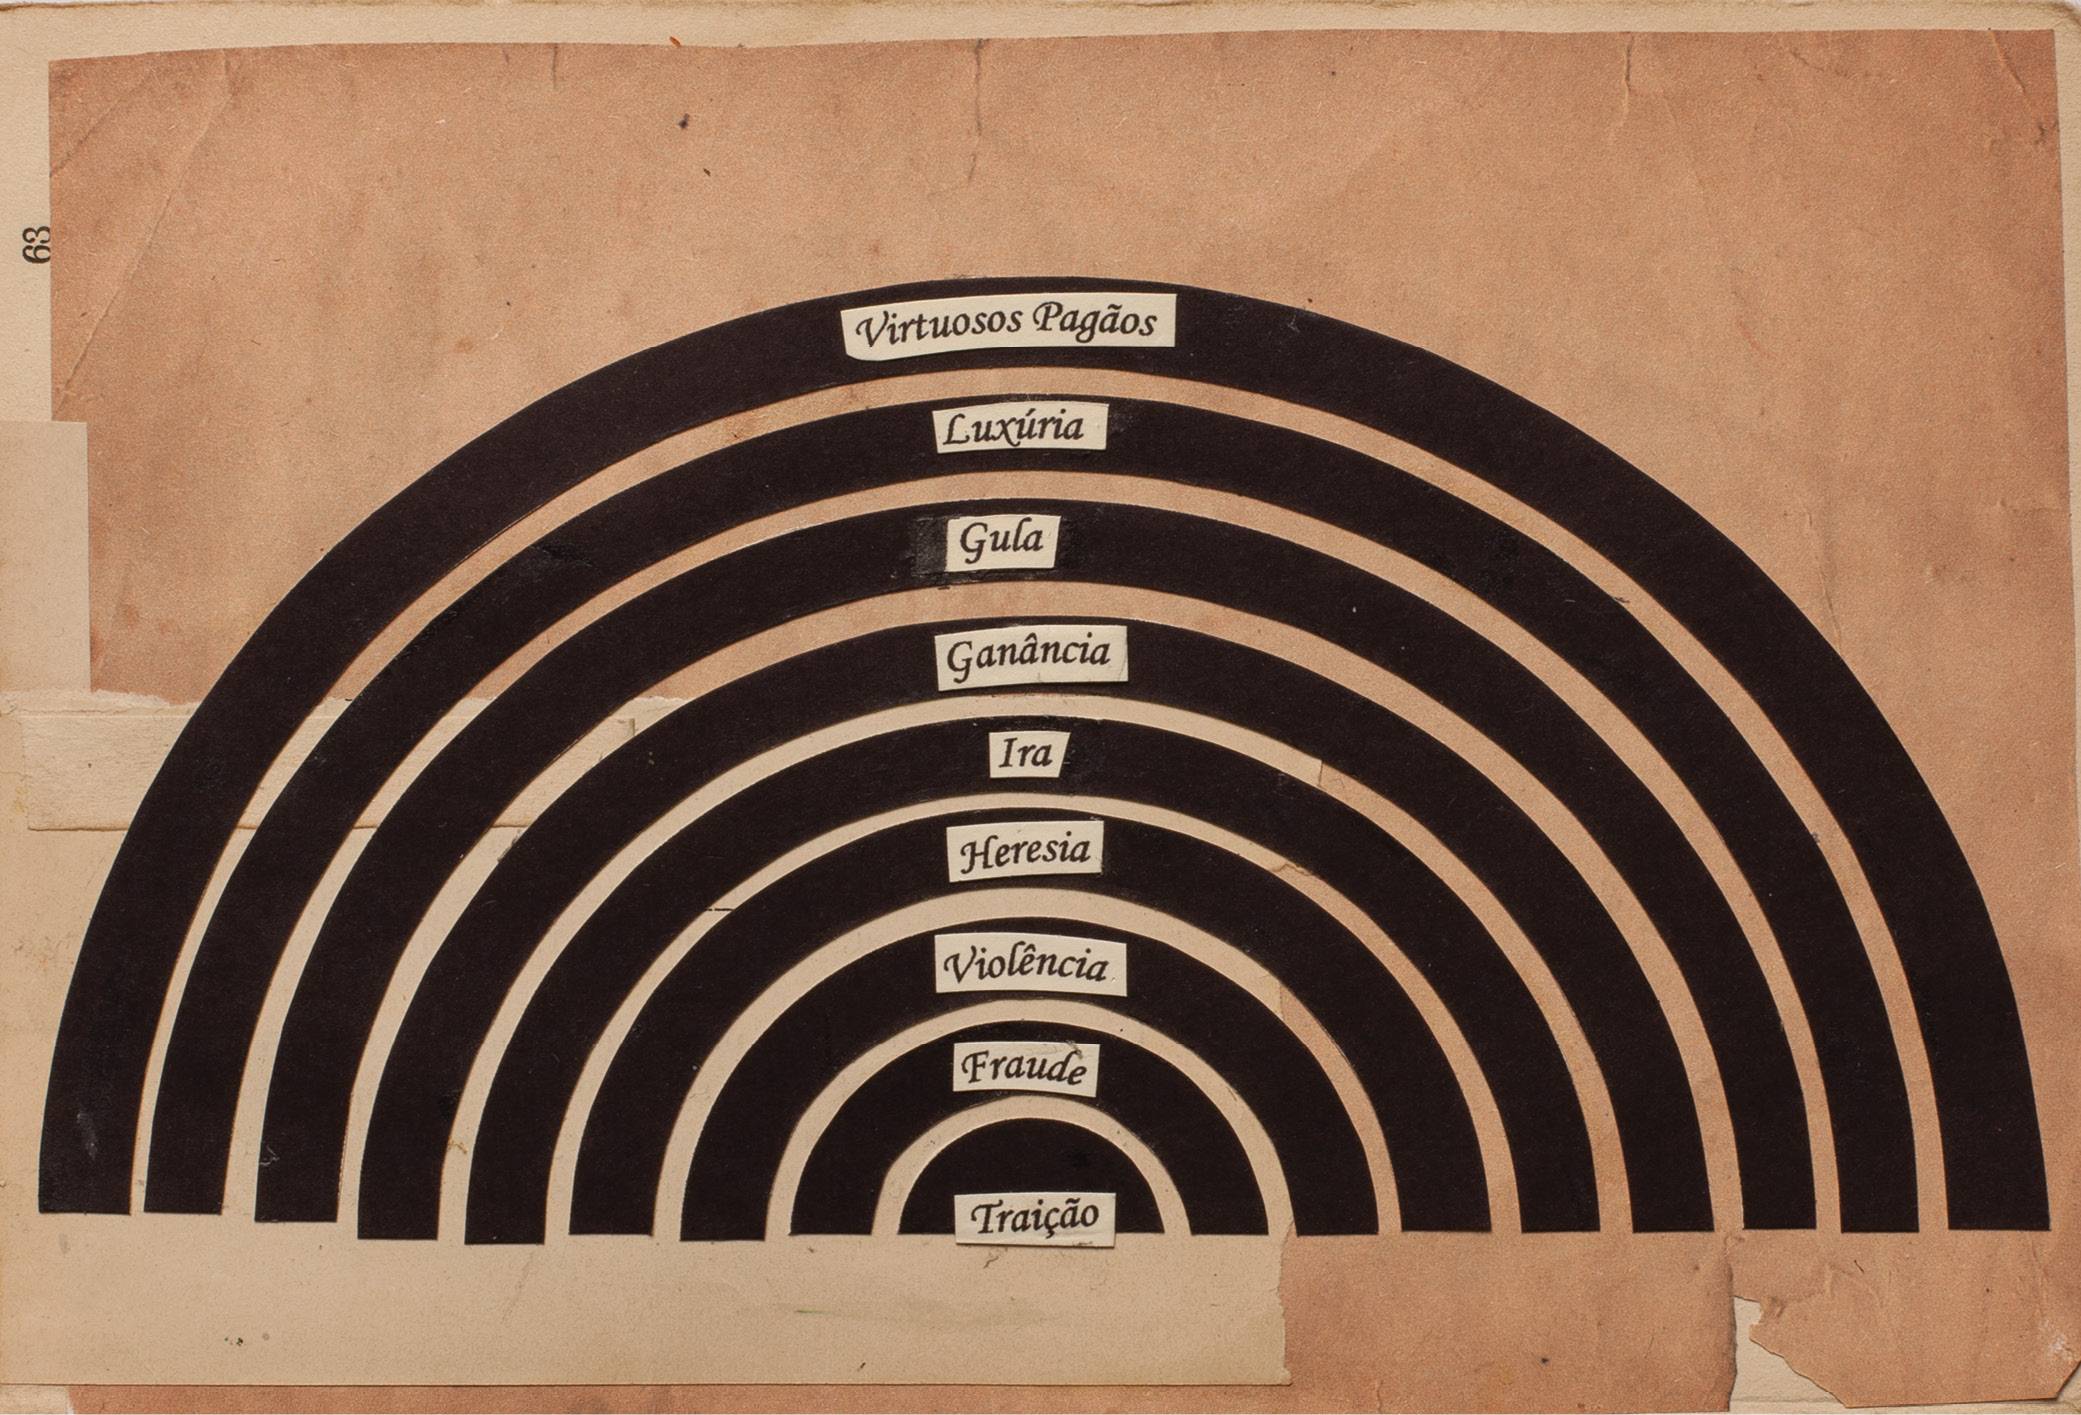 63
Virtuosos Pagãos
Luxúria
Gula
Ganância
Ira
Heresia
Violência
Fraude
Traição